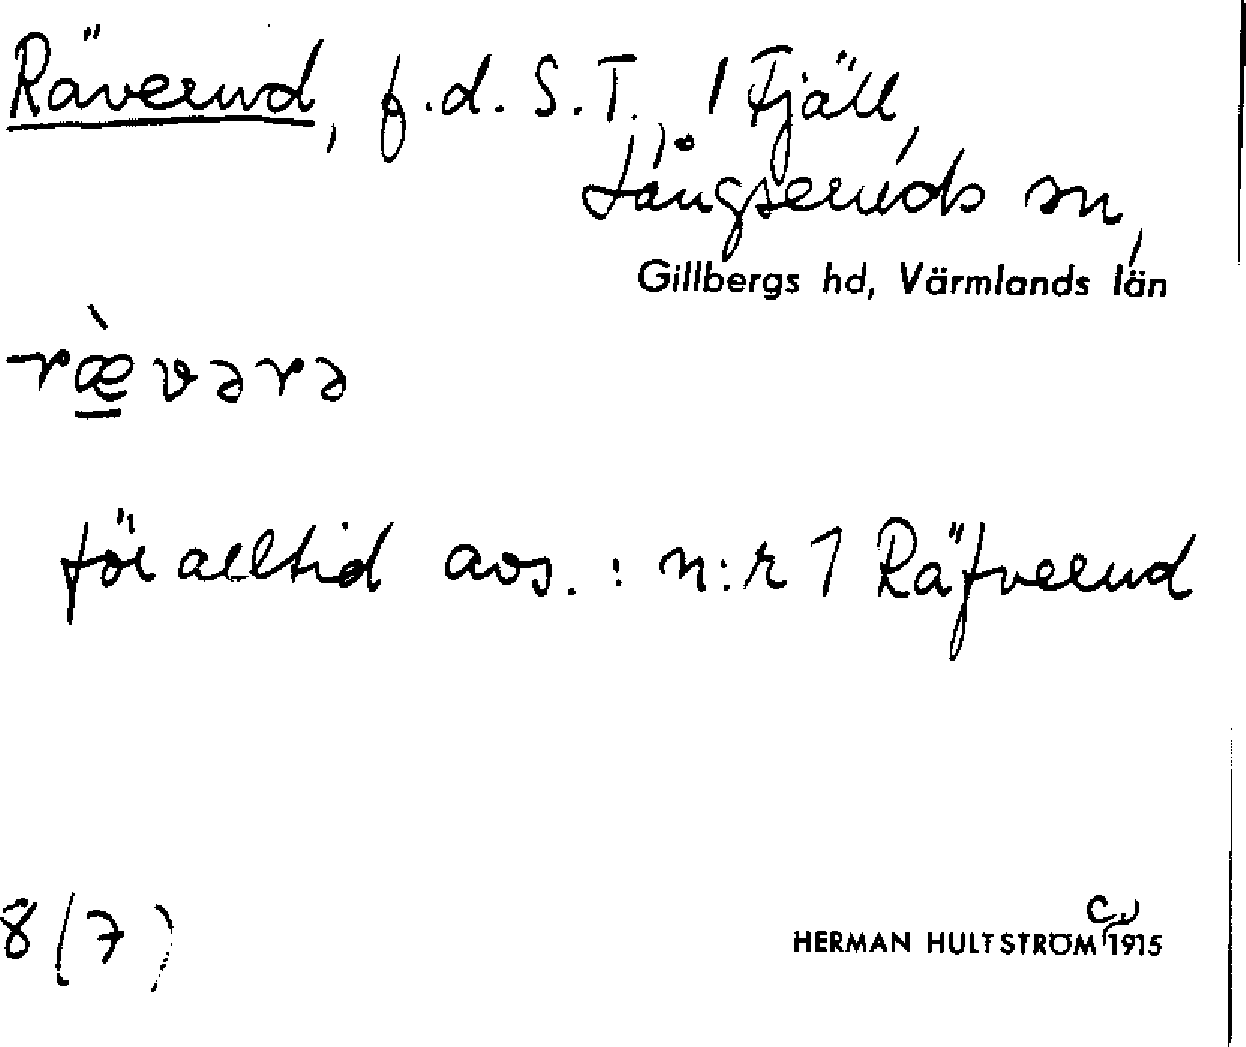 Räverud, f.d. S.T. 1 Fjäll,
Långseruds sn,
Gillbergs hd, Värmlands län
ræ̀vərə
för alltid avs. : n:r 1 Räfverud
8 (7)
HERMAN HULTSTRÖM 1915